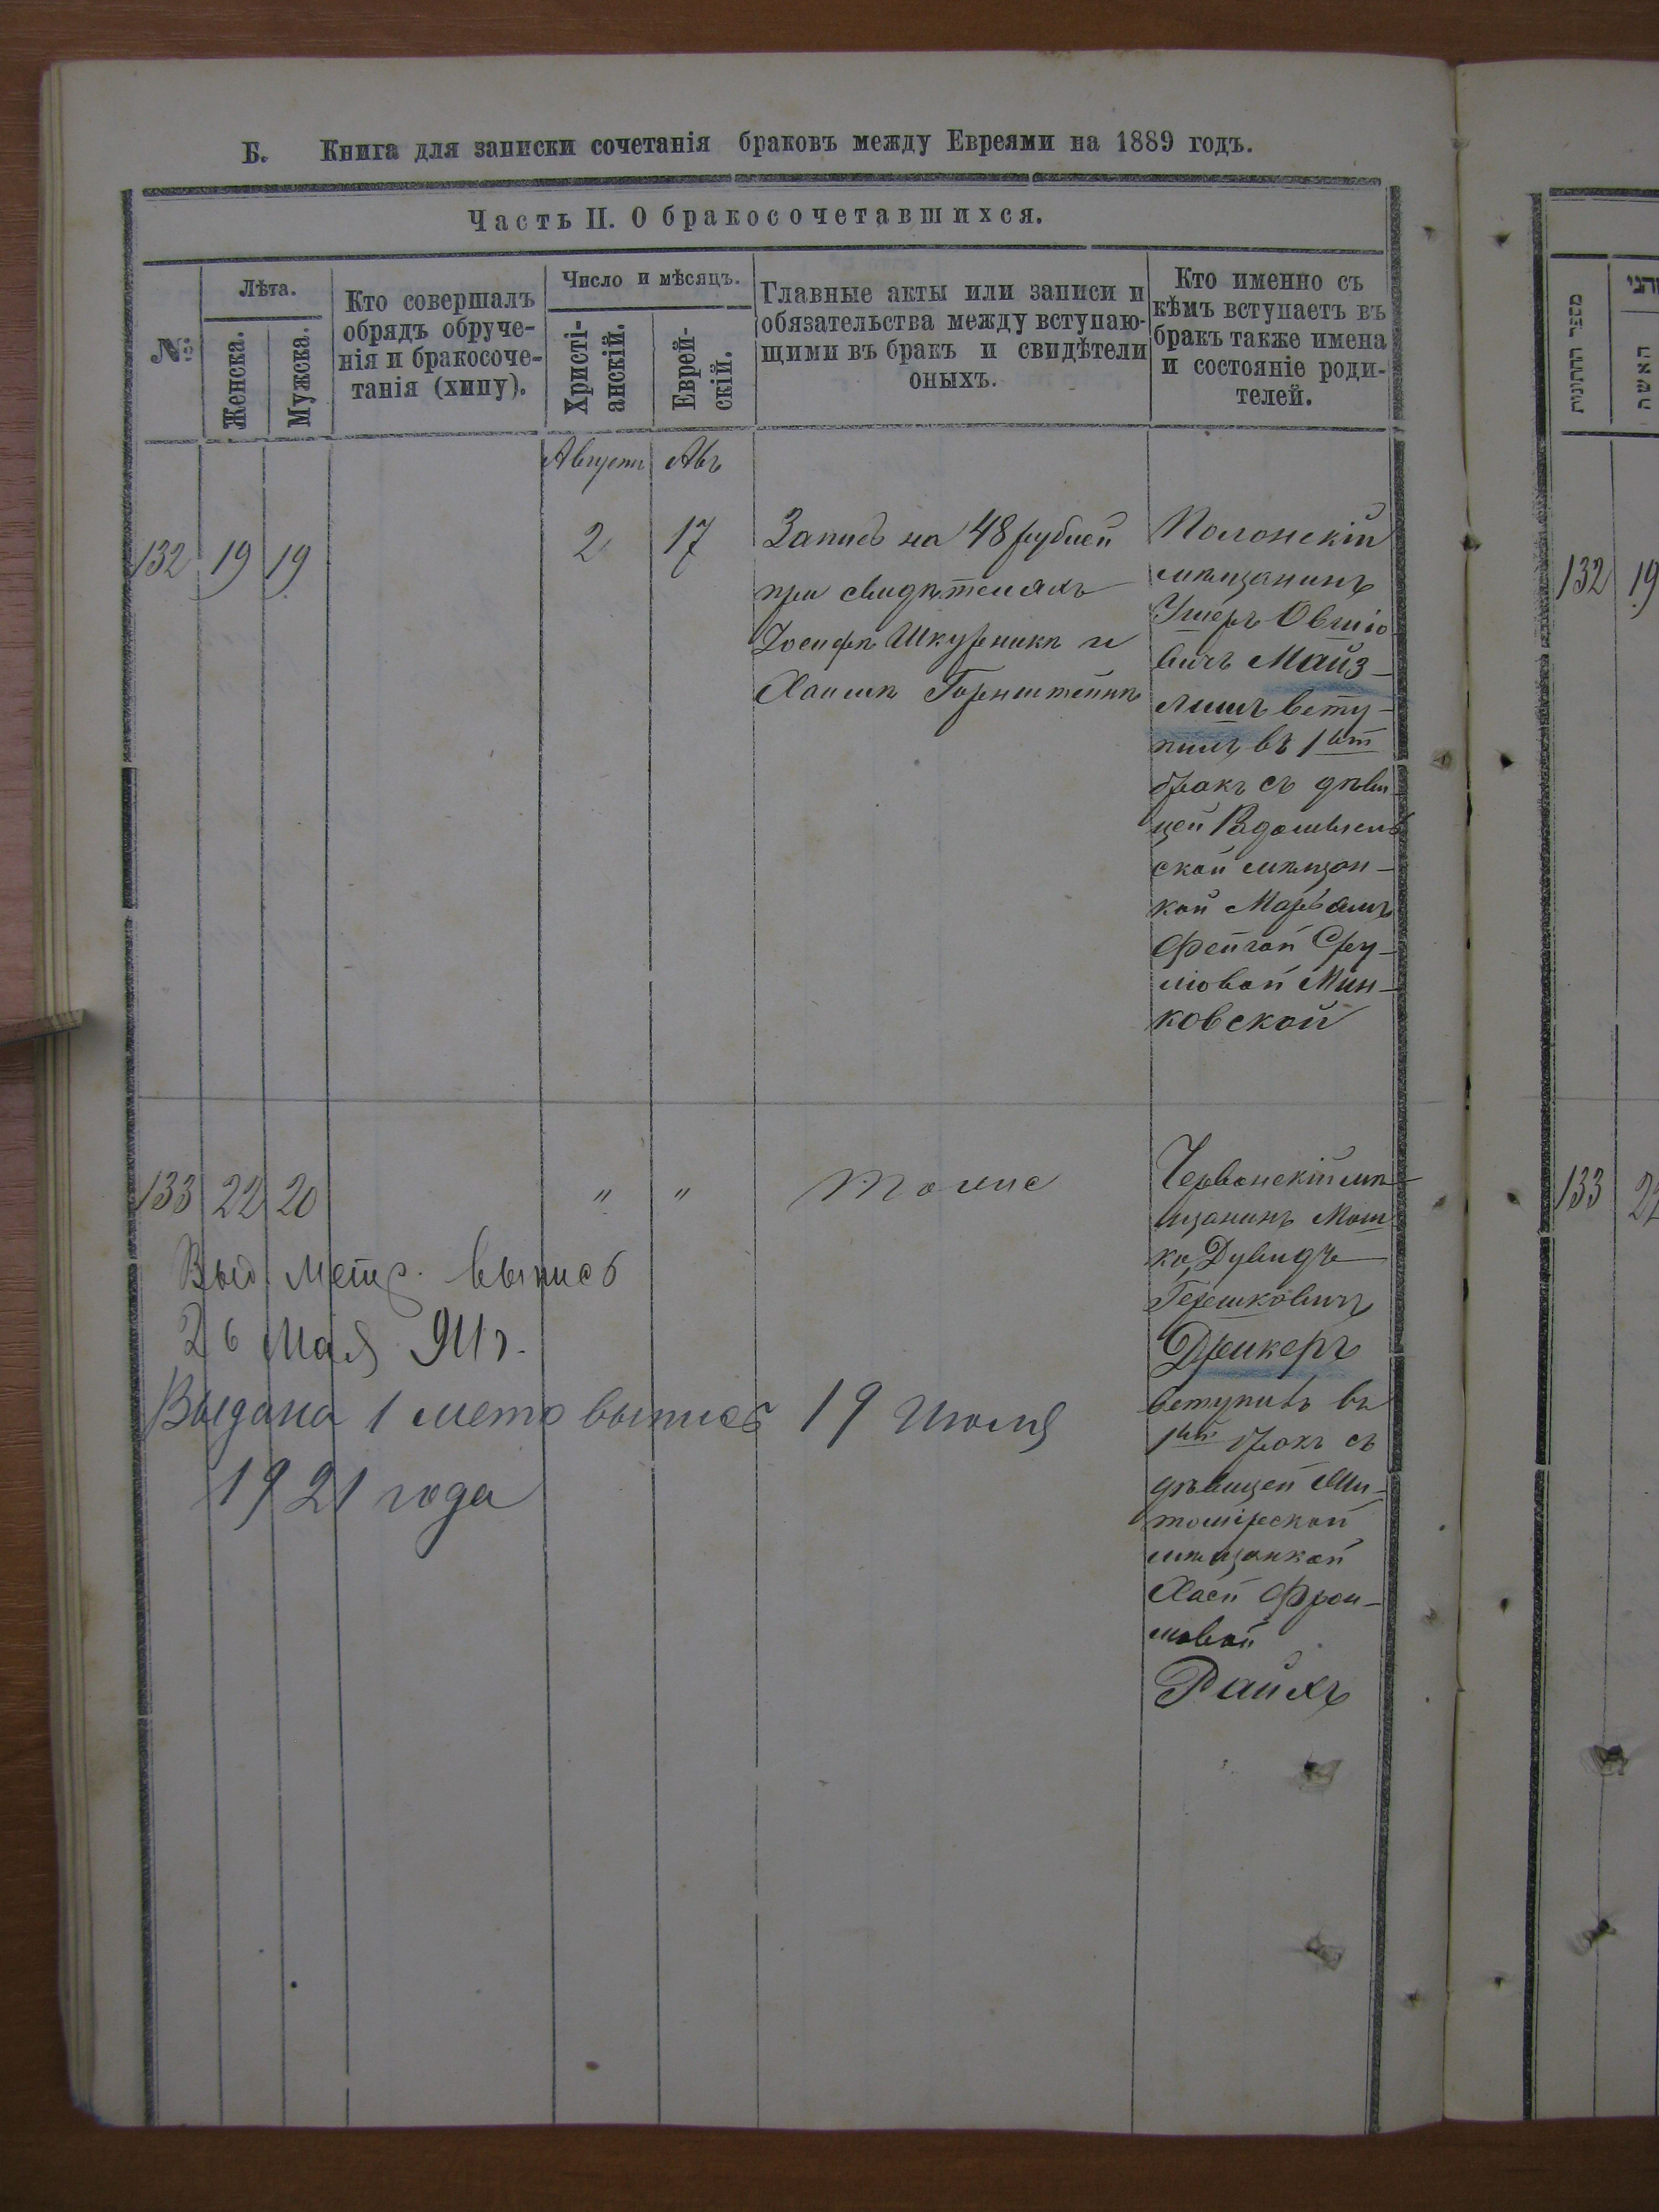 Б. Книга для записки сочетанія браковъ между Евреями на 1889 годъ.
Часть II. О бракосочетавшихся.
№
Лѣта.
Женска.
Мужска.
Кто совершалъ
обрядъ обруче-
нія и бракосоче-
танія (хипу).
Число и мѣсяцъ.
Христі-
анскій.
Еврей-
скій.
Главные акты или записи и
обязательства между вступаю-
щими въ бракъ и свидѣтели
оныхъ.
Кто именно съ
кѣмъ вступаетъ въ
бракъ также имена
и состояніе роди-
телей.
Августъ Авъ
132 19 19 2 17
Запись на 48 рублей
при свидѣтеляхъ
Іосифѣ Шкурникѣ и
Хаимѣ Горенштейнѣ
Полонскій
мѣщанинъ
Ушеръ Овшіо
вичъ Майз-
лишъ всту-
пилъ въ 1
бракъ съ дѣви
цей
ской мѣщан-
кой Марьамъ
Фейгой Сру-
левой Мин-
ковской
133 22 20 " " Тоже
Червонскій мѣ
щанинъ Мош
ко Дувидъ
Гершковичъ
Дрикеръ
вступилъ въ
1 бракъ съ
дѣвицей Жи-
томірской
мѣщанкой
Хаей Фрои-
мовой
Райхъ
Выд. метр. выпись
26 Мая 911 г.
Выдана 1 метр выпись 19 Июля
1921 года
מספר החתונות
האשה
132 19
133